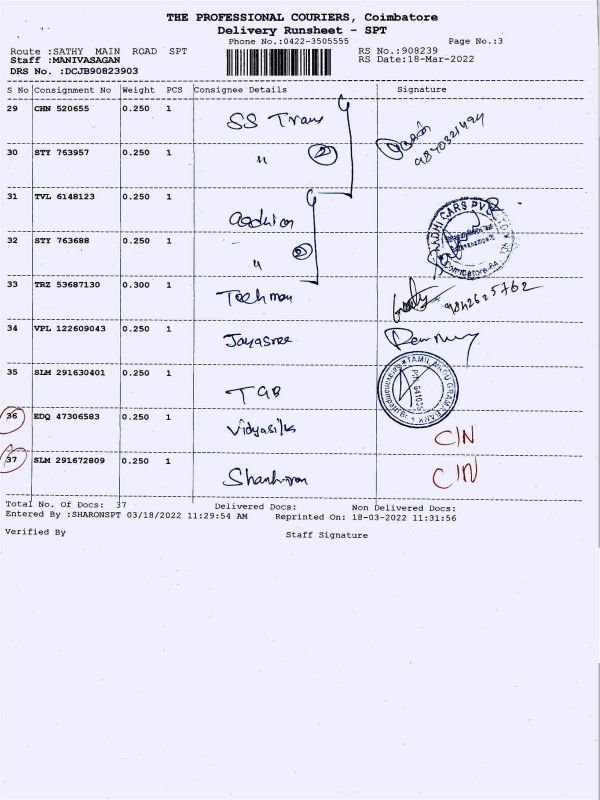 THE PROFESSIONAL COURIERS, Coimbatore
Delivery Runsheet - SPT
Phone No.:0422-3505555 Page No.:3
Route :SATHY MAIN ROAD SPT RS No.:908239
Staff :MANIVASAGAN RS Date:18-Mar-2022
DRS No. :DCJB90823903
S No Consignment No Weight PCS Consignee Details Signature
29 CHN 520655 0.250 1 SS Trans
9840321494
30 STY 763957 0.250 1 " 2
31 TVL 6148123 0.250 1 Aadhi cars
AADHI CARS PVT
Coimbatore
32 STY 763688 0.250 1 " 2
33 TRZ 53687130 0.300 1 Techmen 9842625762
34 VPL 122609043 0.250 1 Jayasree
35 SLM 291630401 0.250 1 TGB
TAMIL NADU GRAMA BANK
PIN 641035
Saravanampatti
36 EDQ 47306583 0.250 1 Vidyasilks C/N
37 SLM 291672809 0.250 1 C/N
Total No. Of Docs: 37 Delivered Docs: Non Delivered Docs:
Entered By :SHARONSPT 03/18/2022 11:29:54 AM Reprinted On: 18-03-2022 11:31:56
Verified By Staff Signature